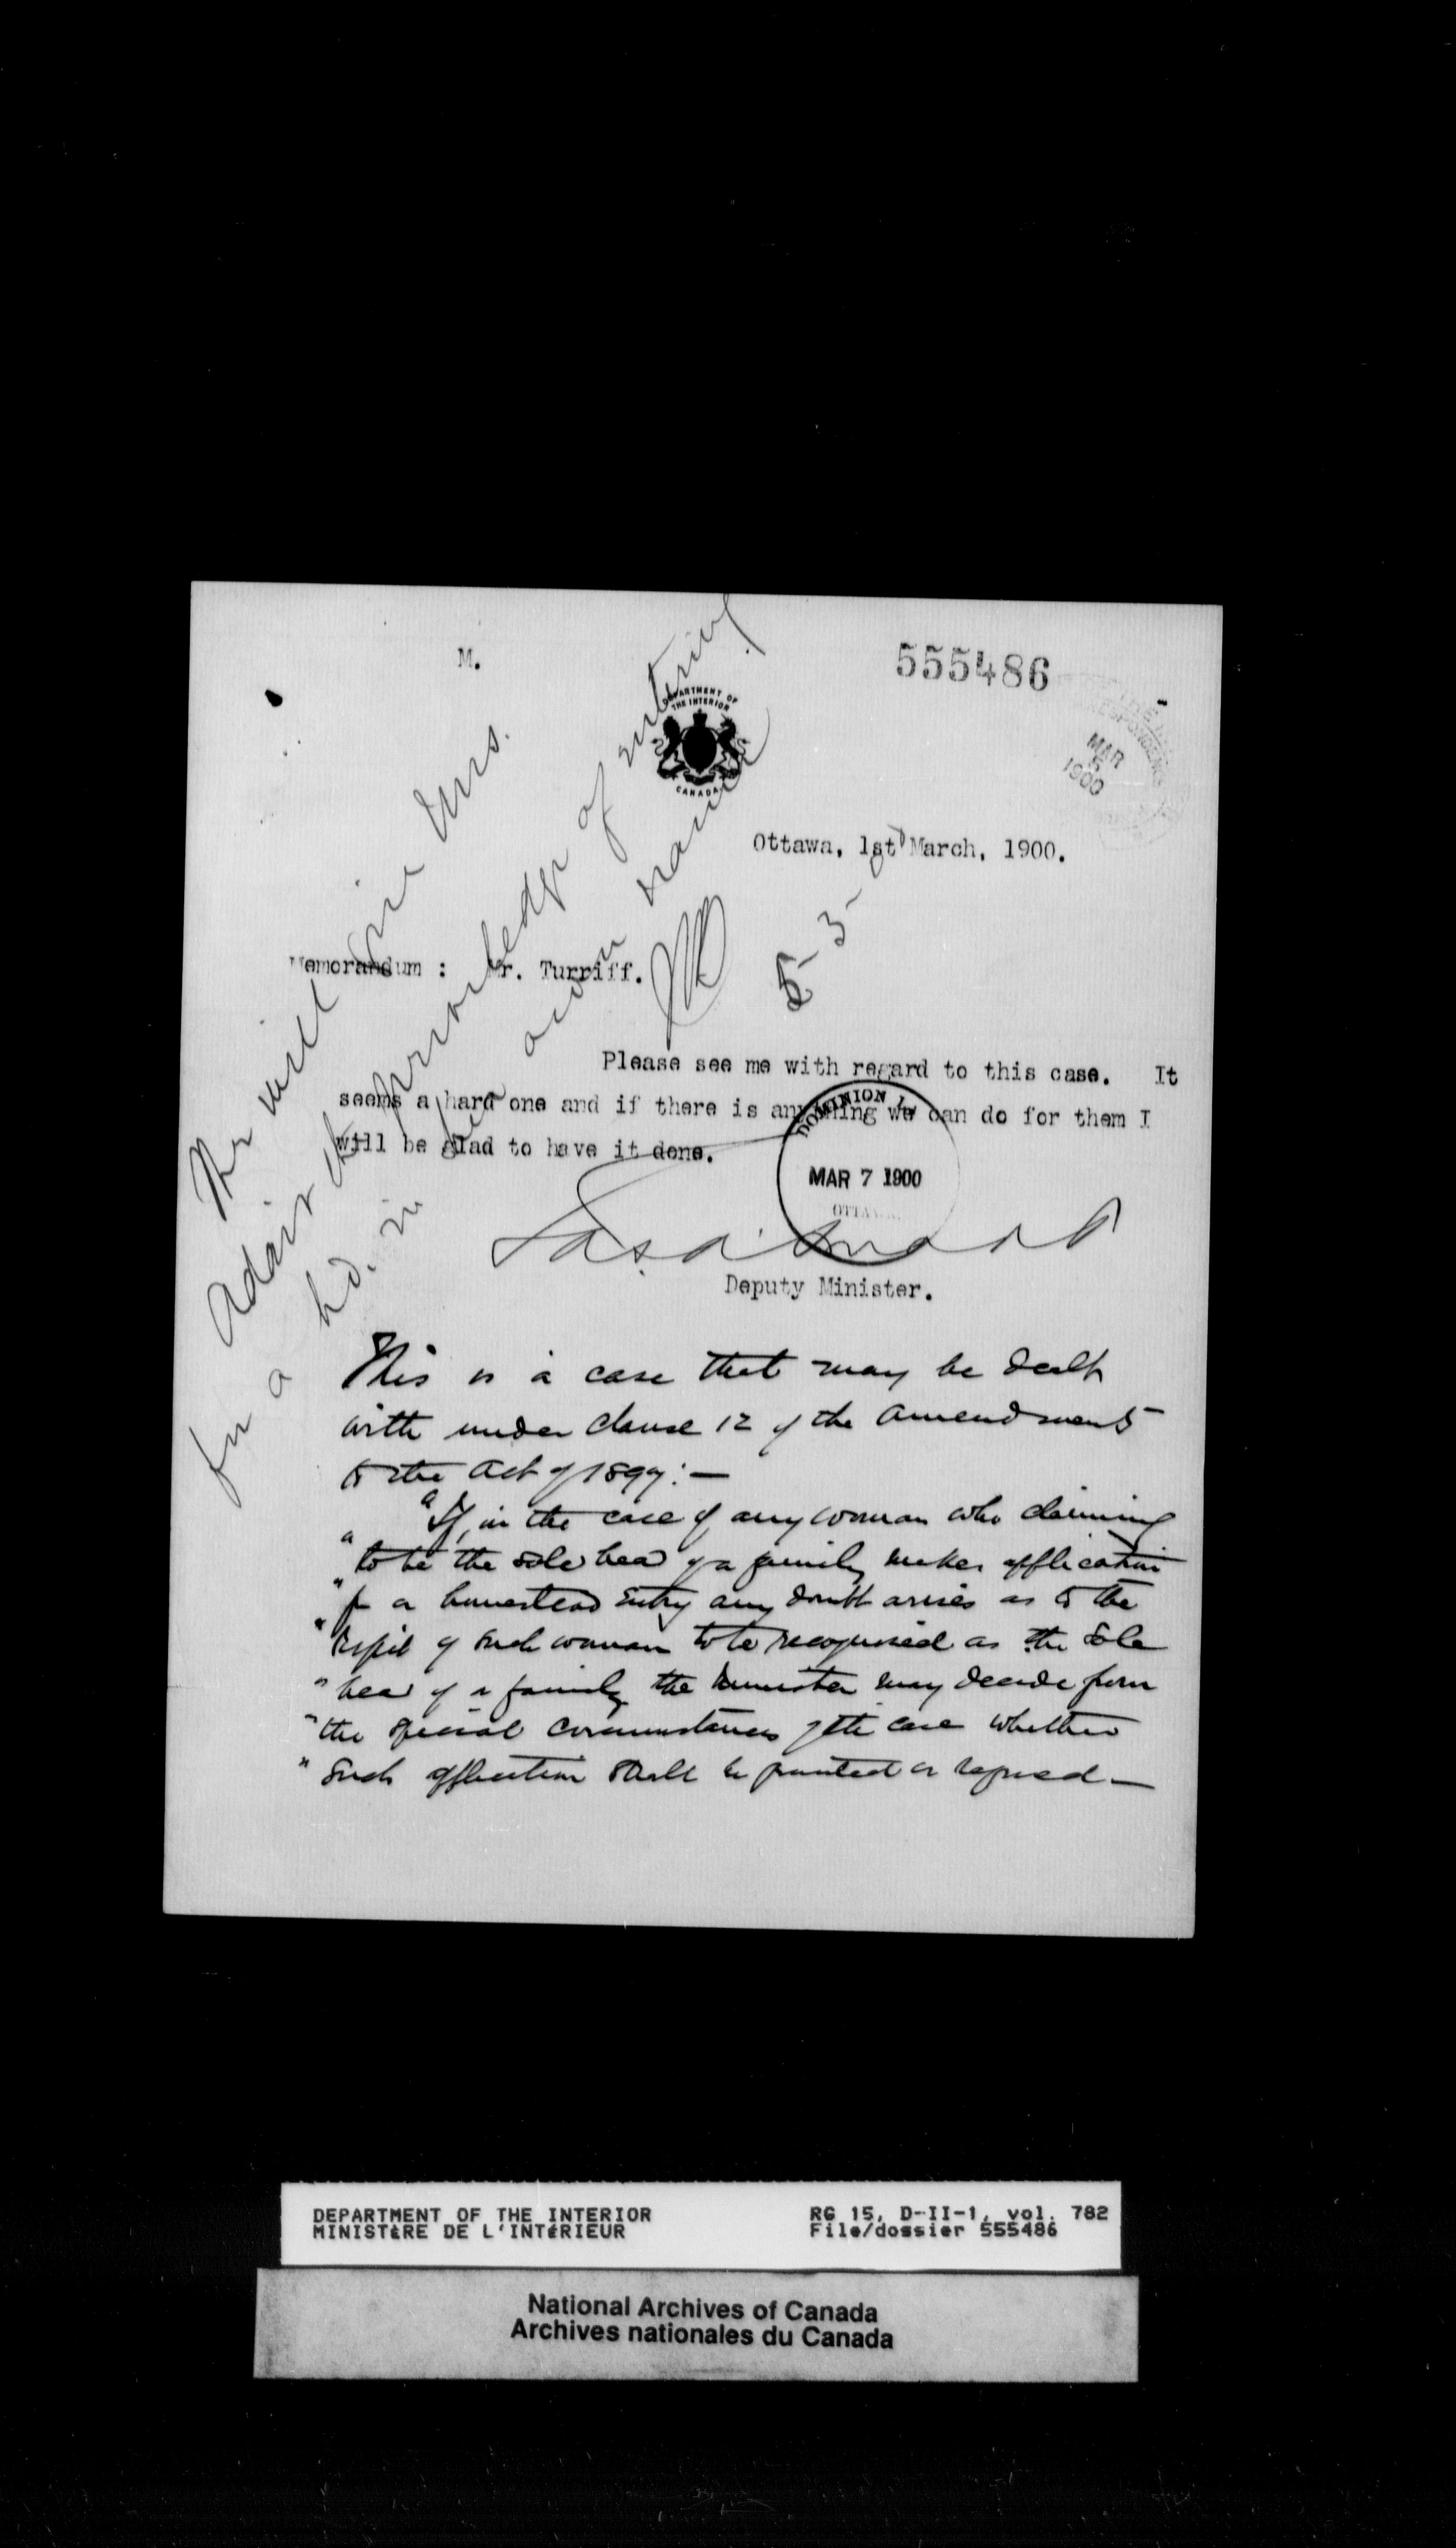 M.
555486
DEPARTMENT OF
THE INTERIOR
CANADA
MAR
5
1900
Ottawa, 1st March, 1900.
Memorandum : Mr. Turriff.
5-3-
Please see me with regard to this case. It
seems a hard one and if there is anything we can do for them I
will be glad to have it done.
DOMINION
MAR 7 1900
OTTAWA
Jas. A. Smart
Deputy Minister.
We will give Mrs.
Adair the privilege of entering
for a hd. in her own name
This is a case that may be dealt
with under clause 12 of the amendments
to the Act of 1897:—
"If, in the case of any woman who claiming
"to be the sole head of a family makes application
"for a homestead entry any doubt arises as to the
"right of such woman to be recognised as the sole
"head of a family the Minister may decide from
"the special circumstances of the case whether
"such application shall be granted or refused—
DEPARTMENT OF THE INTERIOR
MINISTÈRE DE L'INTÉRIEUR
RG 15, D-II-1, vol. 782
File/dossier 555486
National Archives of Canada
Archives nationales du Canada